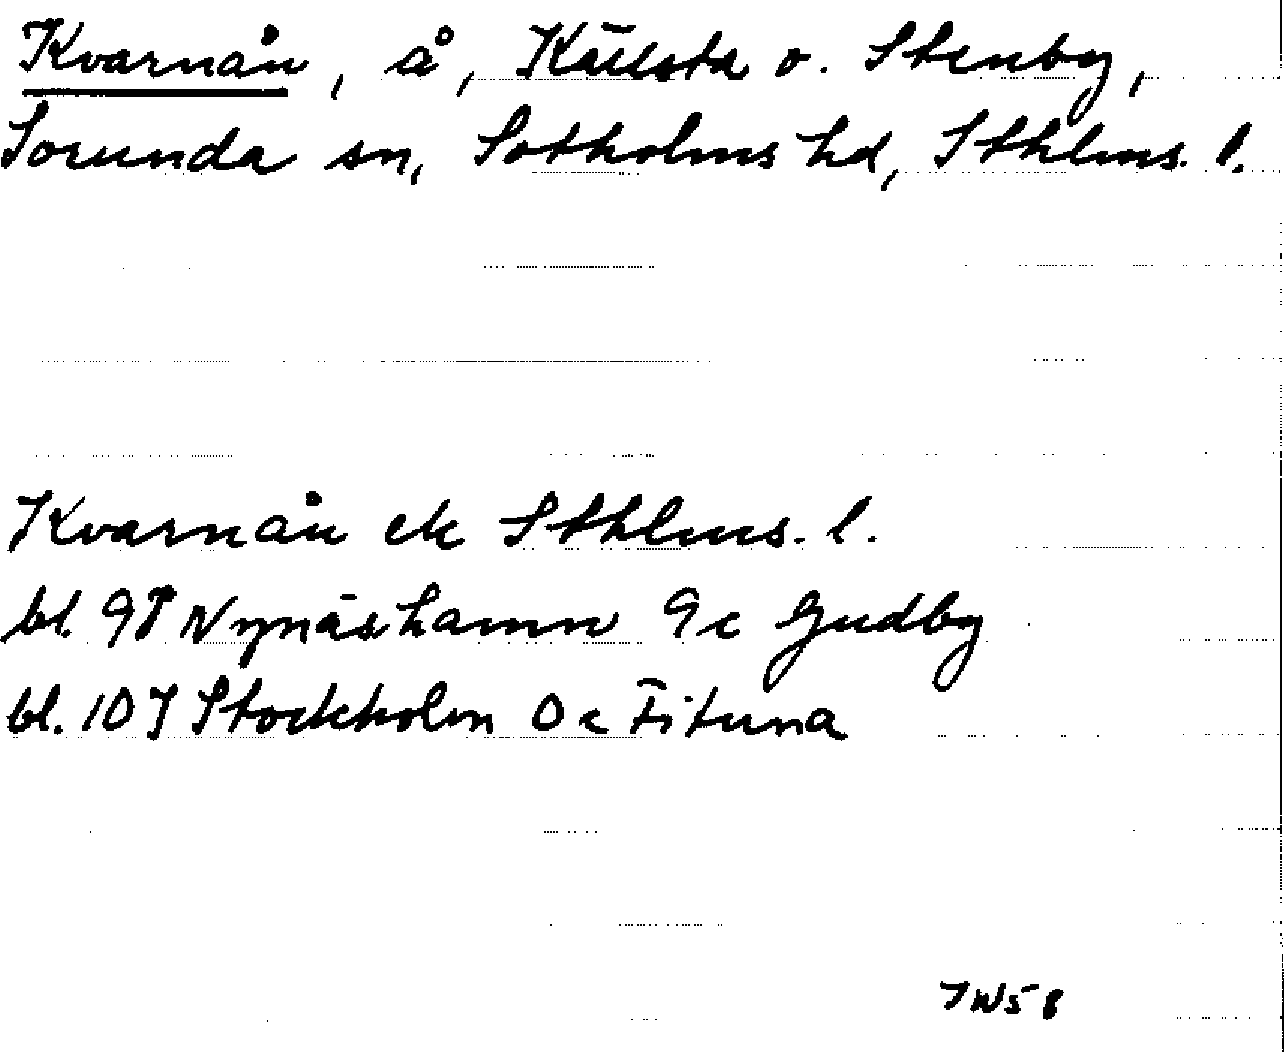 Kvarnån, å, Källsta o. Stenby,
Sorunda sn, Sotholms hd, Sthlms. l.
Kvarnån ek Sthlms. l.
bl. 9I Nynäshamn 9c Gudby
bl. 10I Stockholm 0c Fituna